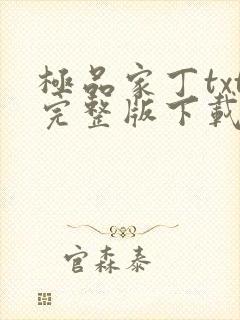 極品家丁txt
完整版下載
官森泰